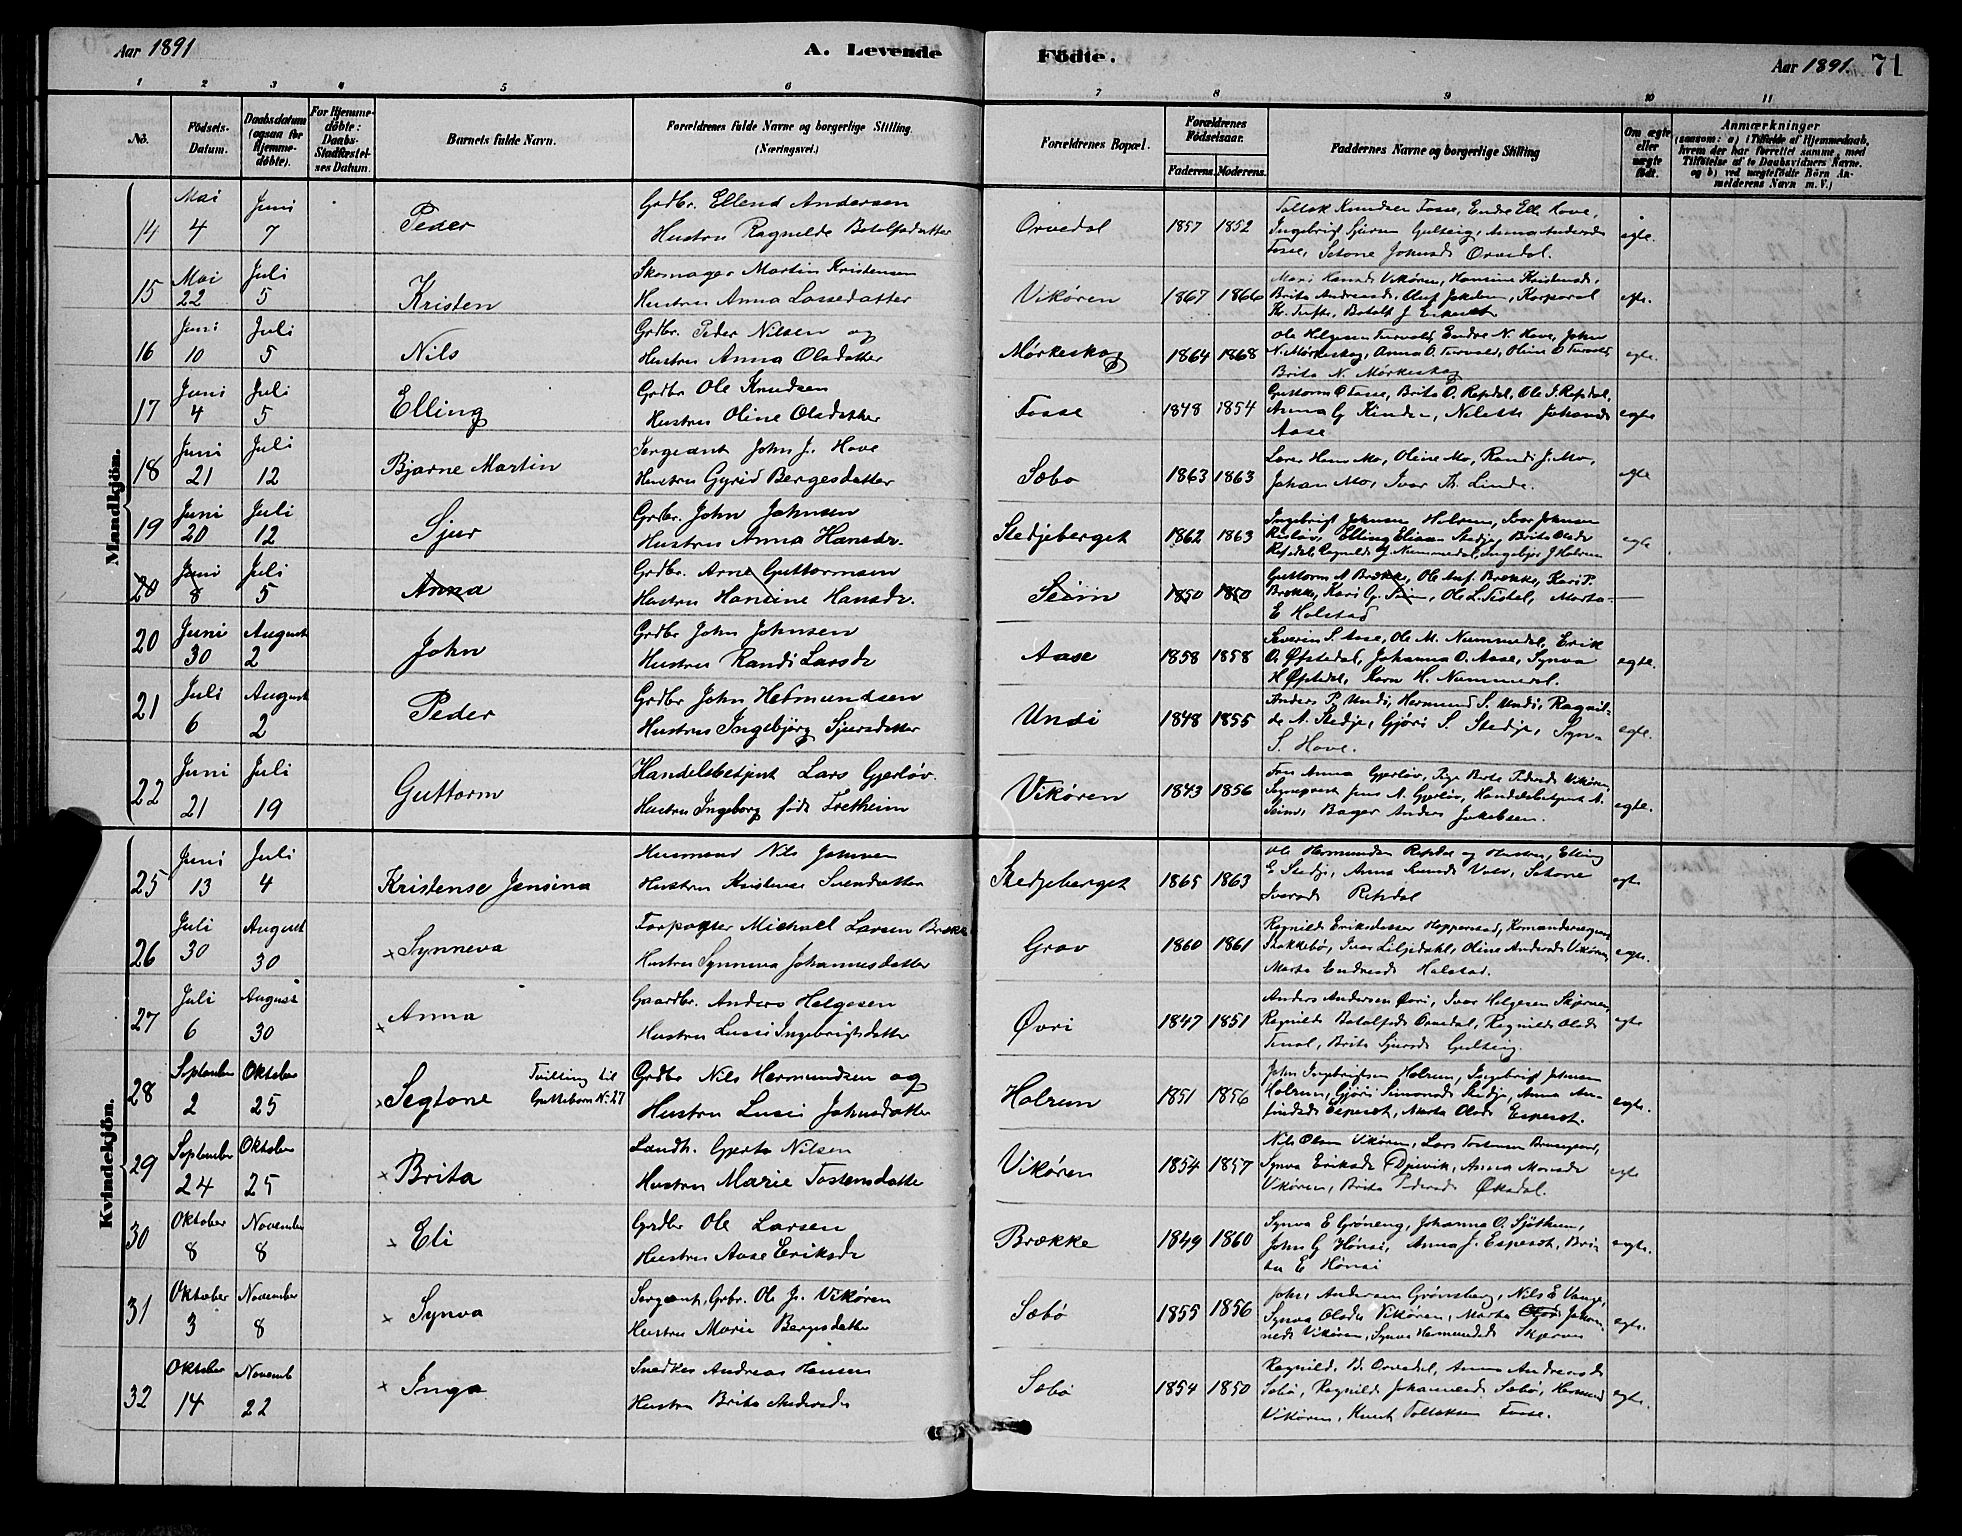 Aar 1891
A. Levende
Födte.
Aar 1891.
71
1 2 3 4 5 6 7 8 9 10 11
No.
Födsels-
Datum.
Daabsdatum
(ogsaa for
Hjemme-
döbte).
For Hjemme-
döbte:
Daabs-
Stadfæstel-
ses Datum.
Barnets fulde Navn.
Forældrenes fulde Navne og borgerlige Stilling.
(Næringsvei.)
Forældrenes Bopæl.
Forældrenes
Födselsaar.
Faderens. Moderens.
Faddernes Navne og borgerlige Stilling
Om ægte
eller
uægte
födt.
Anmærkninger
(saasom: a) i Tilfælde af Hjemmedaab,
hvem der har forrettet samme, med
Tilföielse af to Daabsvidners Navne.
og b) ved uægtefödte Börn An-
melderens Navn m. V.)
Mandkjön.
14 Mai 4 Juni 7 Peder
Grdbr. Ellend Andersen
Hustru Ragnilde Botolfsdatter
Orvedal 1857 1852
Tollak Knudsen Fosse, Endre Ell. Hove,
Fosse, Setone Johnsd. Orvedal.
egte.
15 Mai 22 Juli 5 Kristen
Skomager Martin Kristensen
Hustru Anna Lassedatter
Vikören 1867 1866
Brita Andersd., Korporal
egte.
16 Juni 10 Juli 5 Nils
Grdbr. Peder Nilsen og
Hustru Anna Olsdatter
Mørkeskog 1864 1868
Ole Helgesen Turvold, Endre N. Hove, John
N. Mørkeskog, Anna O. Turvold, Oline O Turvold,
Brita N. Mørkeskog
egte.
17 Juni 4 Juli 5 Elling
Grdbr Ole Knudsen
Hustru Oline Olsdatter
Fosse 1848 1854
Guttorm O Fosse, Brita O. Refsdal, Ole I. Refsdal,
Anna G Kinden, Nilette Johansd.
Aase
egte
18 Juni 21 Juli 12 Bjarne Martin
Sergeant John J. Hove
Hustru Gyrid Bergesdatter
Sæbo 1863 1863
Lærer Hans Mo, Oline Mo, Randi J. Mo,
Johan Mo, Ivar Th. Linde.
egte
19 Juni 20 Juli 12 Sjur
Grdbr. John Johnsen
Hustru Anna Hansdr.
Stedjeberget 1862 1863
Ingebrigt Johnsen Holrum, Ivar Johnsen
Elling Stedje, Brita Olsdr
Refsdal, Ragnilde J. Nummedal, Ingebjør J Holrum
egte
20 Juni 8 Juli 5 Anna
Grdbr. Arne Guttormsen
Hustru Hansine Hansdr.
Seim 1850 1850
Guttorm A Brække, Ole Anf. Brække, Kari P.
Brække, Kari G. Seim, Ole L. Tistel, Marta
E Holstad
20 Juni 30 August 2 John
Grdbr John Johnsen
Hustru Randi Larsdr
Aase 1858 1858
Severin S. Aase, Ole M. Nummedal, Erik
O. Øfstedal, Johanna O. Aase, Synva
H Øfstedal, Kari H. Nummedal.
egte.
21 Juli 6 August 2 Peder
Grdbr John Hermundsen
Hustru Ingebjørg Sjursdatter
Undi 1848 1855
Anders P. Undi, Hermund S. Undi, Ragnil-
de A. Stedje, Gjøri S. Stedje, Syn-
S. Hove.
egte.
22 Juni 21 Juli 19 Guttorm
Handelsbetjent Lars Gjerløv.
Hustru Ingeborg født Fretheim
Vikören 1843 1856
Fru Anna Gjerløv, Pige Brita Pedersd. Vikören,
Jens A. Gjerløv, Handelsbetjent A.
Seim, Bager Anders Jakobsen.
egte.
Kvindekjön.
25 Juni 13 Juli 4 Kristense Jensina
Husmand Nils Johnsen
Hustru Kristense Svendsdatter
Stedjeberget 1865 1863
Ole Hermundsen Refsdal og Hustru, Elling
E Stedje, Anna Setone
egte
26 Juli 30 August 30 × Synneva
Forpagter Michael Larsen Brække
Hustru Synneva Johannesdatter
Grov 1860 1861
Ragnild Eriksdatter Hopperstad,
Ivar Liljedahl, Oline Andersd. Vikören,
Marta Endresd. Holstad.
egte.
27 Juli 6 August 30 × Anna
Gaardbr. Anders Helgesen
Hustru Lussi Ingebrigtsdatter
Øvri 1847 1851
Anders Andersen Øvri, Ivar Helgesen
Ragnild Botolfsd. Orvedal, Ragnilde Olsd.
Brita Sjursd.
egte
28 September 2 Oktober 25 × Segtone Tvilling til Guttebarn No. 27
Grdbr Nils Hermundsen og
Hustru Lussi Johnsdatter
Holrum 1851 1856
John Ingebrigtsen Holrum, Ingebrigt Johnsen
Holrum, Gjøri Simonsd. Stedje, Anna An-
findsd. Espeset, Marta Olsd. Espeset.
egte.
29 September 24 Oktober 25 × Brita
Landh. Gjert Nilsen
Hustru Marie Tostensdatter
Vikören 1854 1857
Nils Olsen Vikören, Lars Tostensen
Synva Eriksd. Djuvik, Anna
Vikören, Brita Pedersd. Øksdal.
egte
30 Oktober 8 November 8 × Eli
Grdbr Ole Larsen
Hustru Aase Eriksdr
Brække 1849 1860
Synva E Grøneng, Johanna O. Sjøthun,
John G Hønsi, Anna J. Espeset, Bri-
ta E Hønsi
egte.
31 Oktober 3 November 8 × Synva
Sergeant, Grbr. Ole J. Vikören
Hustru Marie Bergesdatter
Sæbö 1855 1856
John Andersen Grønsberg, Nils E Vange,
Synva Olsdr Vikören, Marta Johan-
nesd. Vikören, Synva Hermundsd.
egte.
32 Oktober 14 Novemb 22 × Inga
Snedker Andreas Hansen
Hustru Brita Andersdr
Sæbö 1854 1850
Ragnild B. Orvedal, Anna Andreasd.
Sæbö, Ragnild Johannesd. Sæbö, Hermund
Vikören, Knut Tollaksen Fosse.
egte.